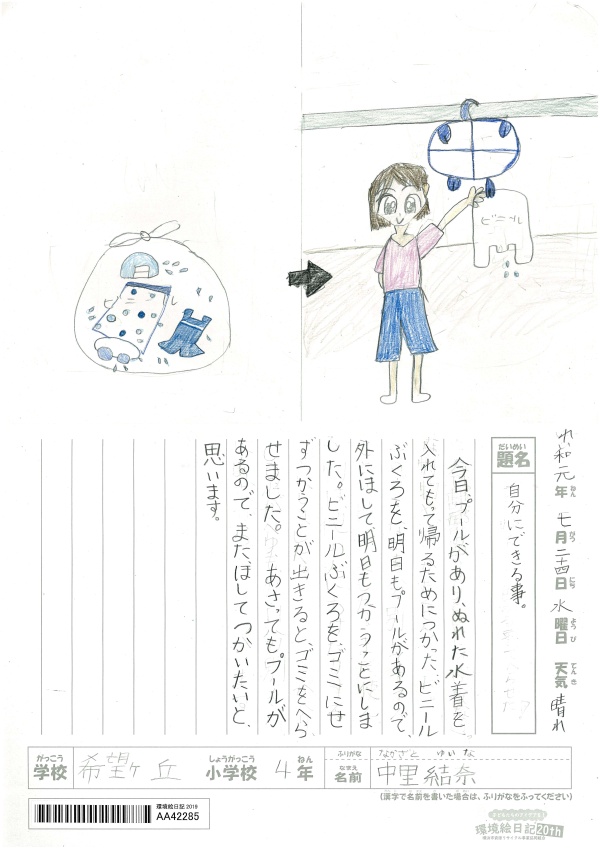 ビニール
ビニール
令和元年 七月二十四日 水曜日 天気 晴れ
ねん がつ にち ようび てんき
だいめい
題名
自分にできる事。
今日、プールがあり、ぬれた水着を、
入れてもって帰るためにつかった、ビニール
ぶくろを、明日もプールがあるので、
外にほして明日もつかうことにしま
した。ビニールぶくろを、ゴミにせ
ずつかうことが出きると、ゴミをへら
せました。あさってもプールが
あるので、またほしてつかいたいと、
思います。
がっこう しょうがっこう ねん ふりがな なかざと ゆいな
学校 希望ヶ丘 小学校 4年 なまえ 名前 中里結奈
(漢字で名前を書いた場合は、ふりがなをふってください)
環境絵日記2019
AA42285
環境絵日記20th